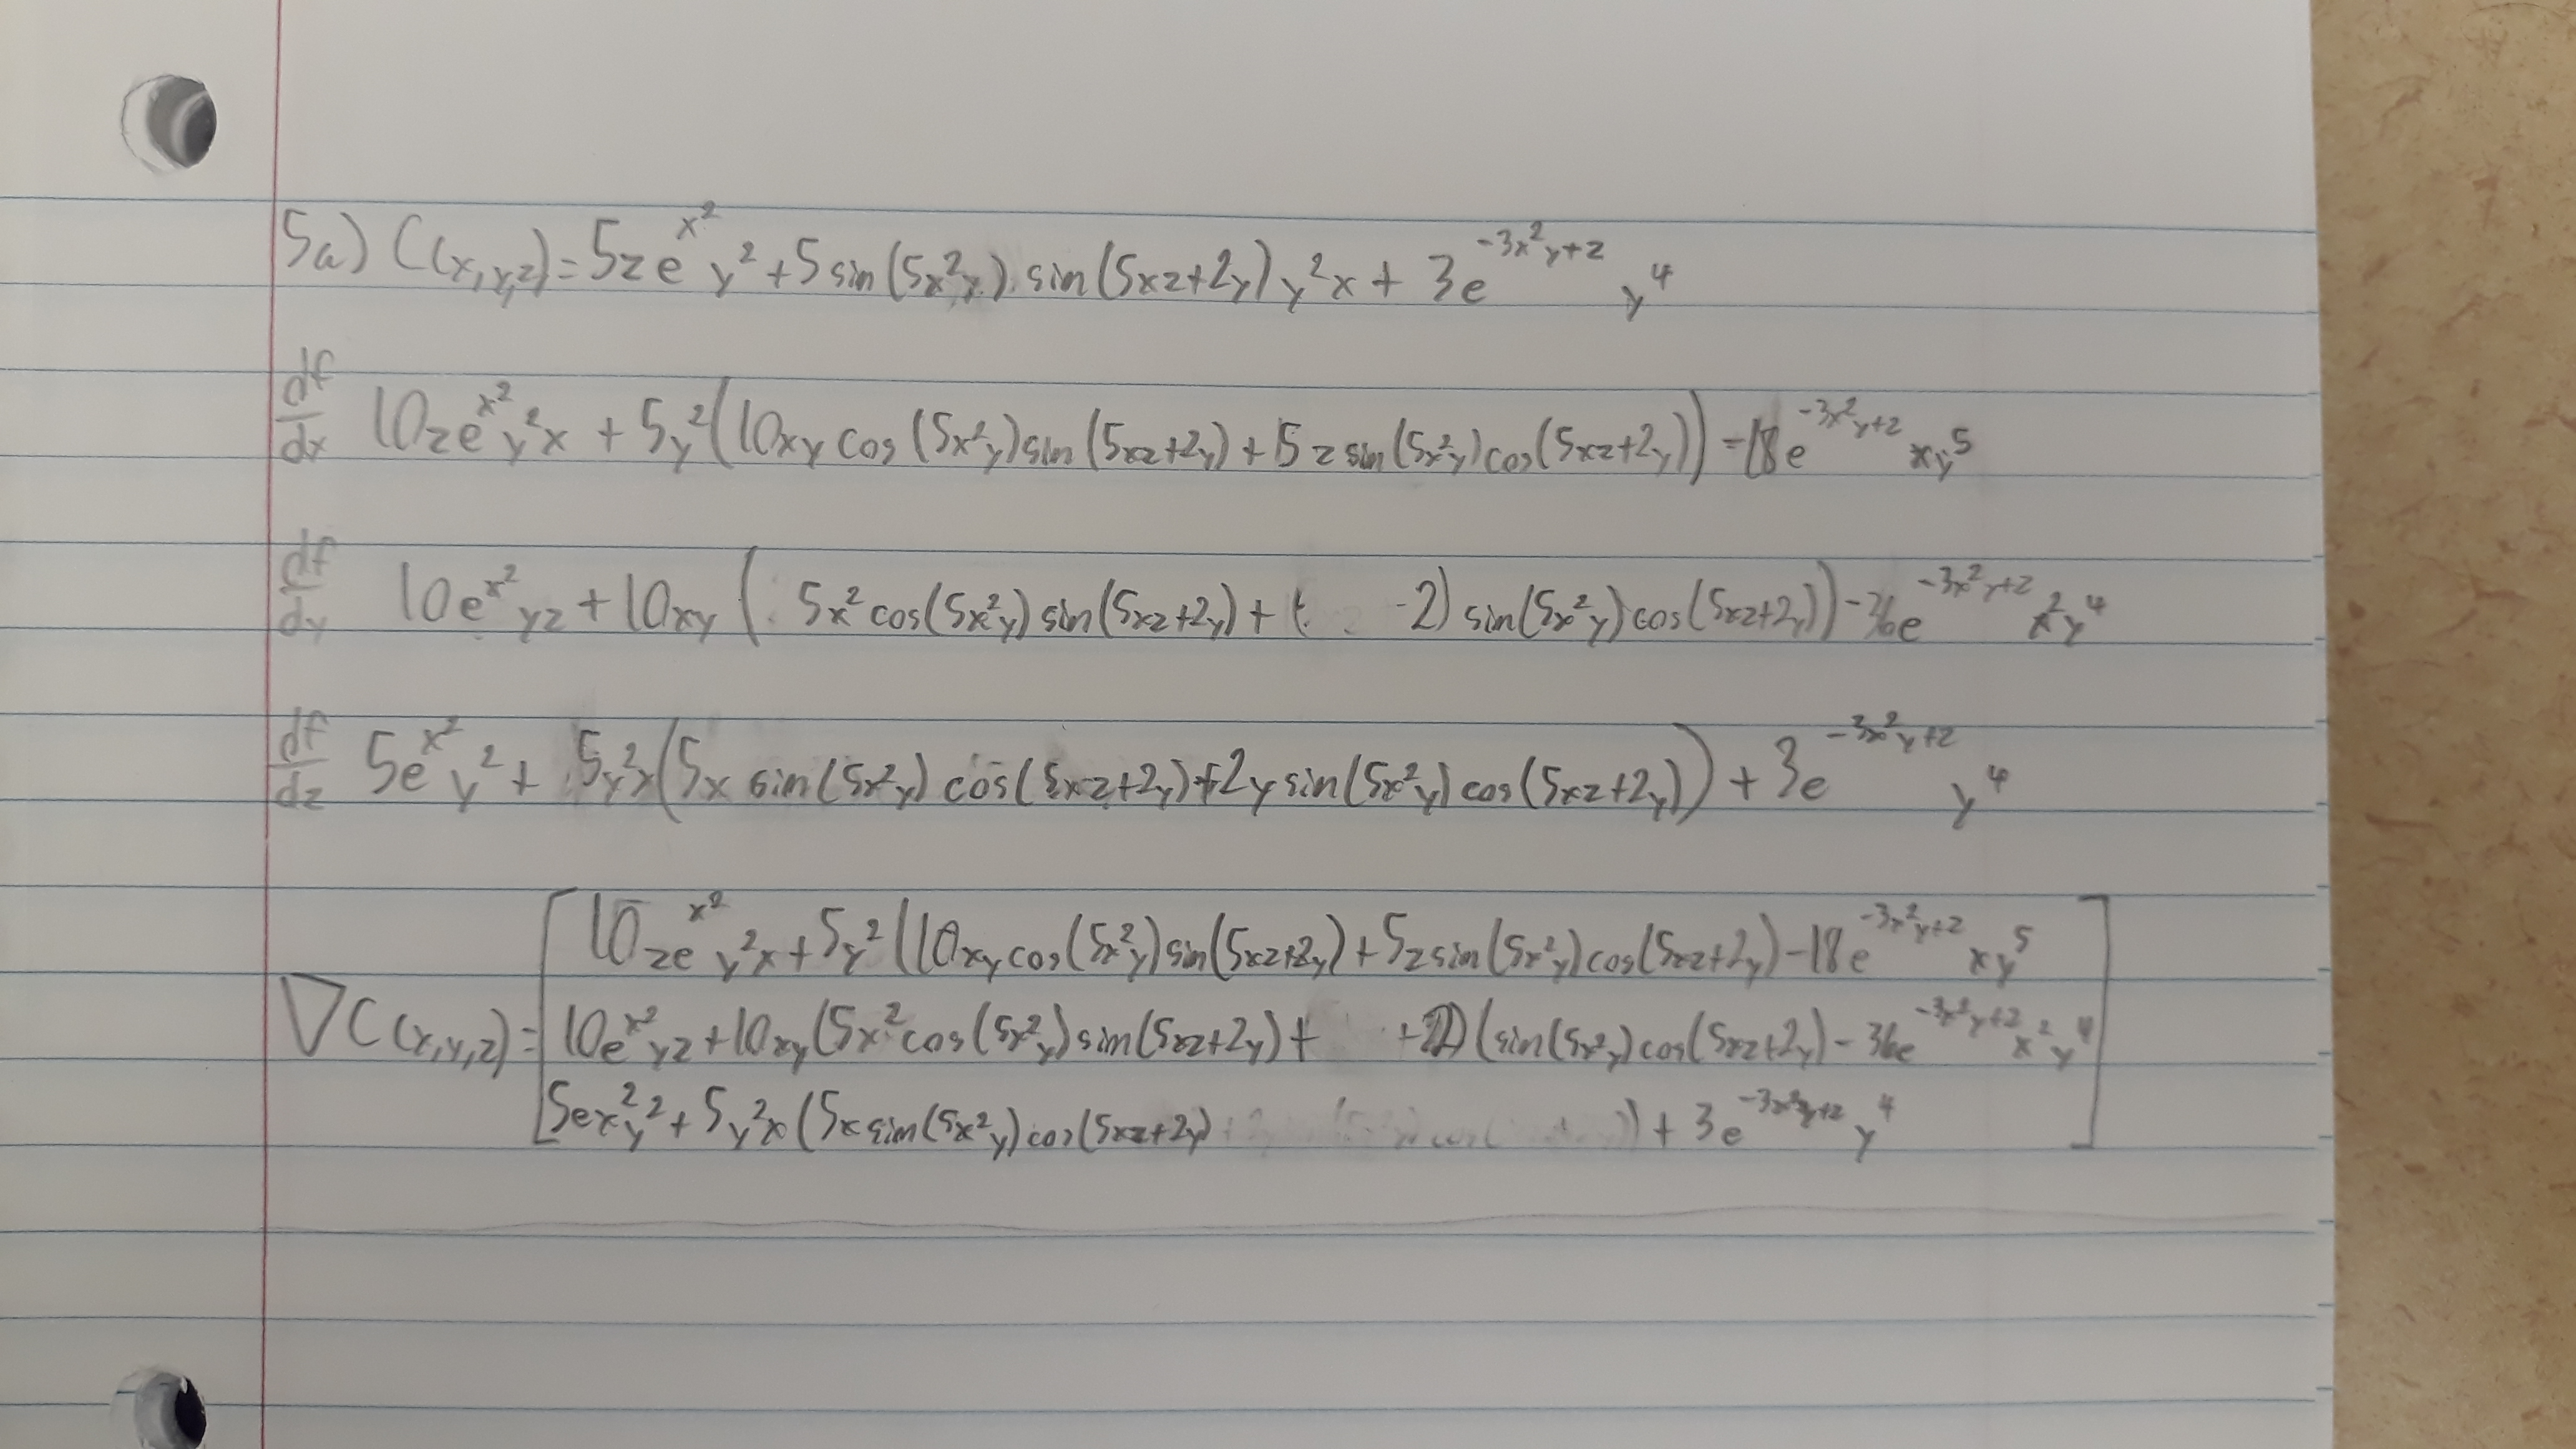 5a) C(x,y,z)=5ze^x² y²+5sin(5x²y).sin(5xz+2y)y²x+3e^-3x²y+z y⁴
df/dx 10ze^x² y²x+5y²(10xy cos(5x²y)sin(5xz+2y)+5z sin(5x²y)cos(5xz+2y))-18e^-3x²y+z xy⁵
df/dy 10e^x² yz+10xy(5x²cos(5x²y)sin(5xz+2y)+( -2)sin(5x²y)cos(5xz+2y))-36e^-3x²y+z x²y⁴
df/dz 5e^x² y²+5y²x(5x sin(5x²y)cos(5xz+2y)+2y sin(5x²y)cos(5xz+2y))+3e^-3x²y+z y⁴
10ze^x² y²x+5y²(10xycos(5x²y)sin(5xz+2y)+5zsin(5x²y)cos(5xz+2y)-18e^-3x²y+z xy⁵
∇C(x,y,z)= 10e^x² yz+10xy(5x²cos(5x²y)sin(5xz+2y)+ +2)(sin(5x²y)cos(5xz+2y)-36e^-3x²y+z x²y⁴
5ex²y²+5y²x(5xsin(5x²y)cos(5xz+2y) )+3e^-3x²y+z y⁴